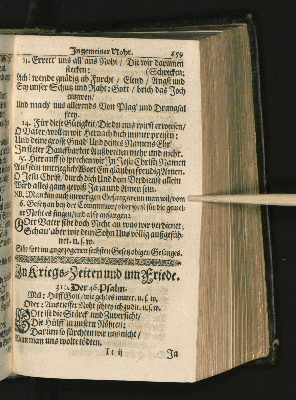 In gemeiner Noht. 659
13. Errett' uns all' aus Noht / Die wir darinnen
stecken;
(Schrecken;
Ach! wende gnädig ab Furcht / Elend / Angst und
Sey unser Schutz und Raht; Gott / brich das Joch
entzwey /
Und mach' uns allerends Von Plag' und Drangsal
frey.
14. Für diese Gütigkeit / Die du uns wirst erweisen /
O Vater / wollen wir Hernach dich immer preisen;
Und deine grosse Gnad' Und deines Namens Ehr'
In steter Danckbarkeit Ausbreiten mehr und mehr.
15. Hierauff so sprechen wir In Jesu Christi Namen
Auf sein unträglich Wort Ein glaubig freudig Amen.
O Jesu Christ / durch dich Und dein Verdienst allein
Wird alles gantz gewiß Ja ja und Amen seyn.
XII. Man kan auch im vorigen Gesang wenn man will / dem
6. Gesetz an bey der Communion / oder sonst für die
Noht es singen / und also anfangen:
Gott Vater sihe doch Nicht an was wir verdienet;
Schau' aber wir dein Sohn Uns völlig außgesüh-
net. u. s. w.
In Kriegs-Zeiten und um Friede.
310. Der 46. Psalm.
Mel: Hilff Gott / wie geht es immer. u. s. w.
Oder: Aus tieffer Noht schrey ich zu dir. u. s. w.
Gott ist die Stärck und Zuversicht /
Die Hülff' in unsern Nöhten;
Darum so fürchten wir uns nicht /
Wann man uns wolte tödten.
Tt ij Ja